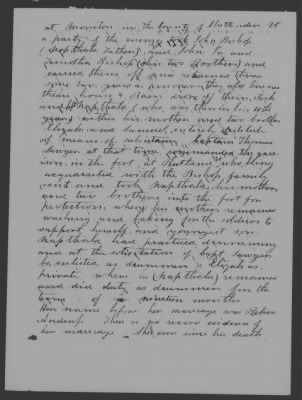 at Monkton in the County of
a party of the enemy took John Bishop
(Napthala father) and John Jr and
Timothy Bishop (his two brothers) and
carried them off and detained them
some two years as prisoners, they also burned
their house & Barn drove off their stock
and left Napthala (who was then in his 10th
year) with his mother and two brothers
Elizah and Samuel, entirely destitute
of means of subsistance. Captain Thomas
Sawyer at that time commanded the garri
son in the fort at Rutland who being
acquainted with the Bishop family
sent and took Napthala, his mother
and two brothers into the fort for
protection, where his mother remained
washing and baking for the soldiers to
support herself and youngest son
Napthala had practiced drumming
and at the solicitation of Capt. Sawyer
he enlisted as drummer & Elijah as
private where he (Napthala) remained
and did duty as drummer for the
term of nineteen months
Her name before her marriage was Rebecca
There is no record evidence of
her marriage She ever since his death